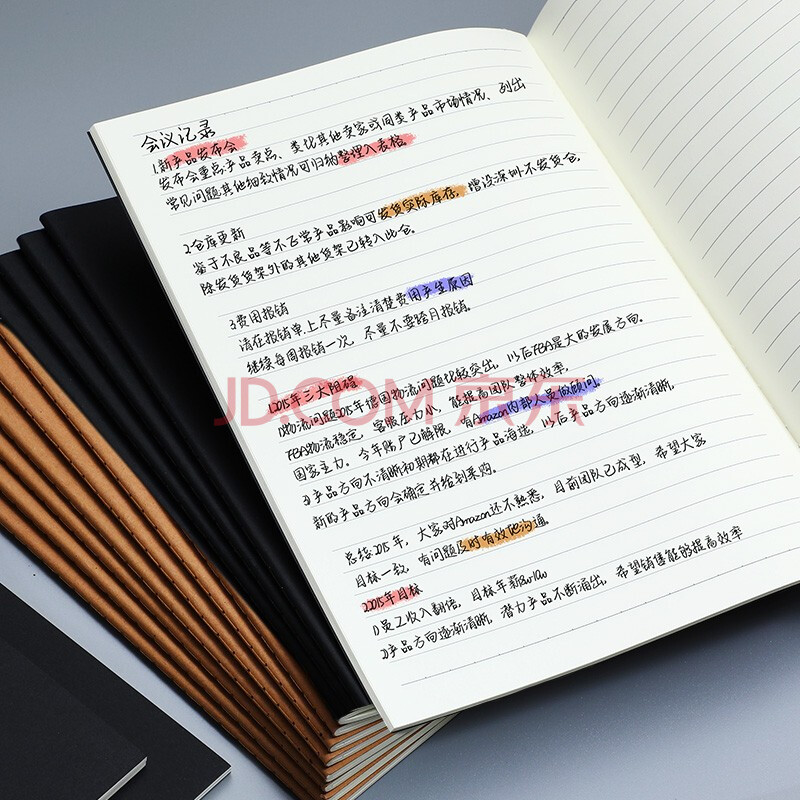 会议记录
1.新产品发布会
发布会重点产品卖点、类比其他卖家或同类产品市场情况、列出
常见问题其他细致情况可归纳整理入表格。
2.仓库更新
鉴于不良品等不正常产品影响可发货实际库存,增设深圳-不发货仓,
除发货货架外的其他货架已转入此仓。
3.费用报销
请在报销单上尽量备注清楚费用产生原因
继续每周报销一次,尽量不要跨月报销。
1.2015年三大阻碍
1)物流问题2015年德国物流问题比较突出,以后FBA是大的发展方向。
FBA物流稳定,客服压力小,能提高团队整体效率,
国家主力。今年账户已解限,有Amazon内部人员做顾问。
2)产品方向不清晰初期都在进行产品海选,以后产品方向逐渐清晰,
新的产品方向会确定并给到采购。
总结:2015年,大家对Amazon还不熟悉,目前团队已成型,希望大家
目标一致,有问题及时有效地沟通。
2.2015年目标
1)员工收入翻倍,目标年薪
2)产品方向逐渐清晰,潜力产品不断涌出,希望销售能够提高效率
JD.COM 京东